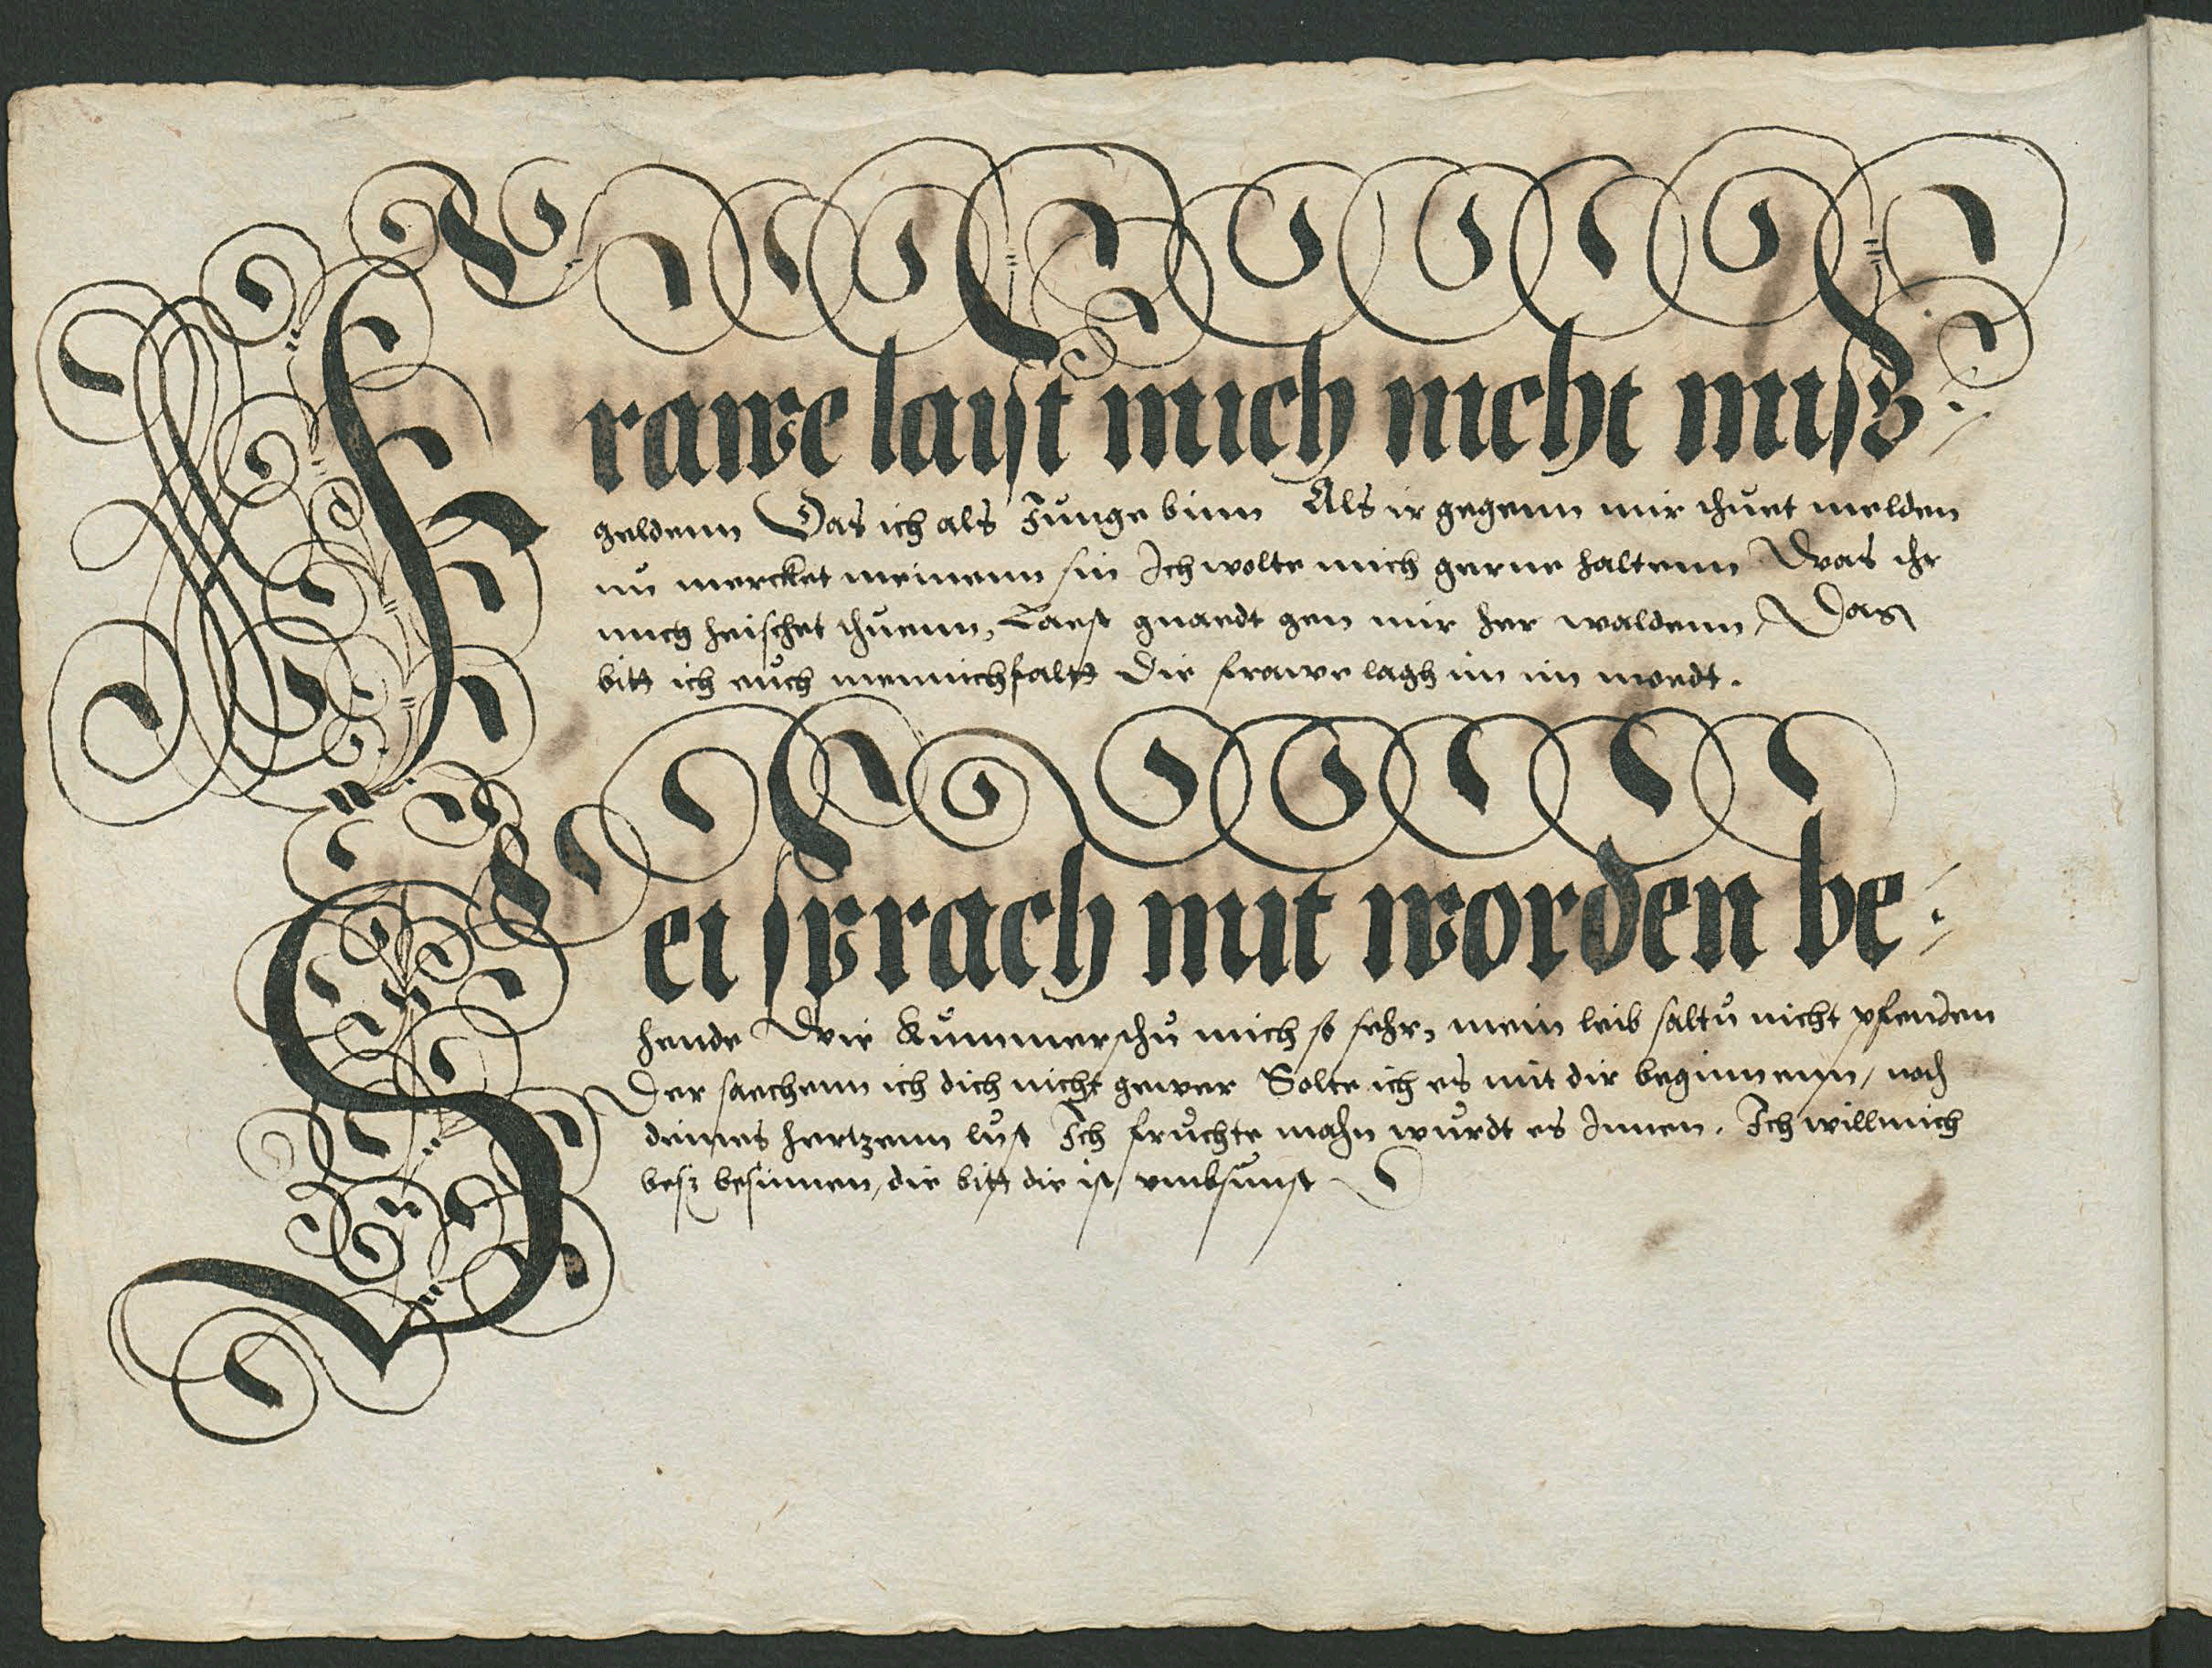 Frawe laist mich nicht miß-
geldenn Das ich als Junge binn Als ir gegenn mir thuet melden
nu mercket meinenn sin Ich wolte mich gerne haltenn Was ihr
mich heischet thuenn, Laest gnaedt gen mir her waldenn, Das
bitt ich euch mennichfalt Die frawe lagh in im moedt.
Sei sprach mit worden be-
hende Wie Kummerstu mich so sehr, mein leib saltu nicht pfenden
Der saechenn ich dich nicht gewer Solte ich es mit dir beginnenn, noch
deines hertzenn lust Ich fruchte mahn wurdt es Innen. Ich will mich
besz besinnen, die bitt die ist umbsunst